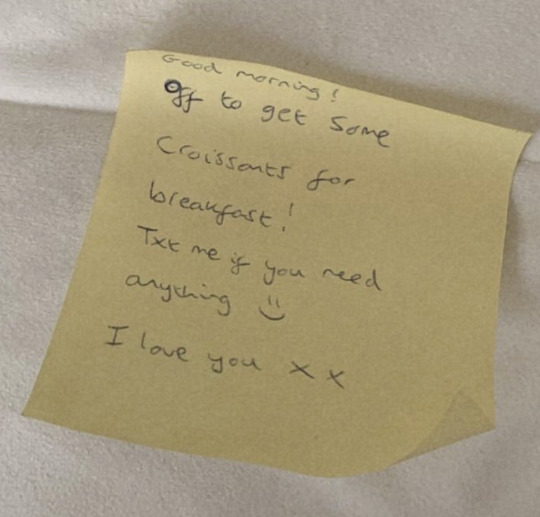 Good morning!
Off to get some
Croissants for
breakfast!
Txt me if you need
anything :)
I love you x x